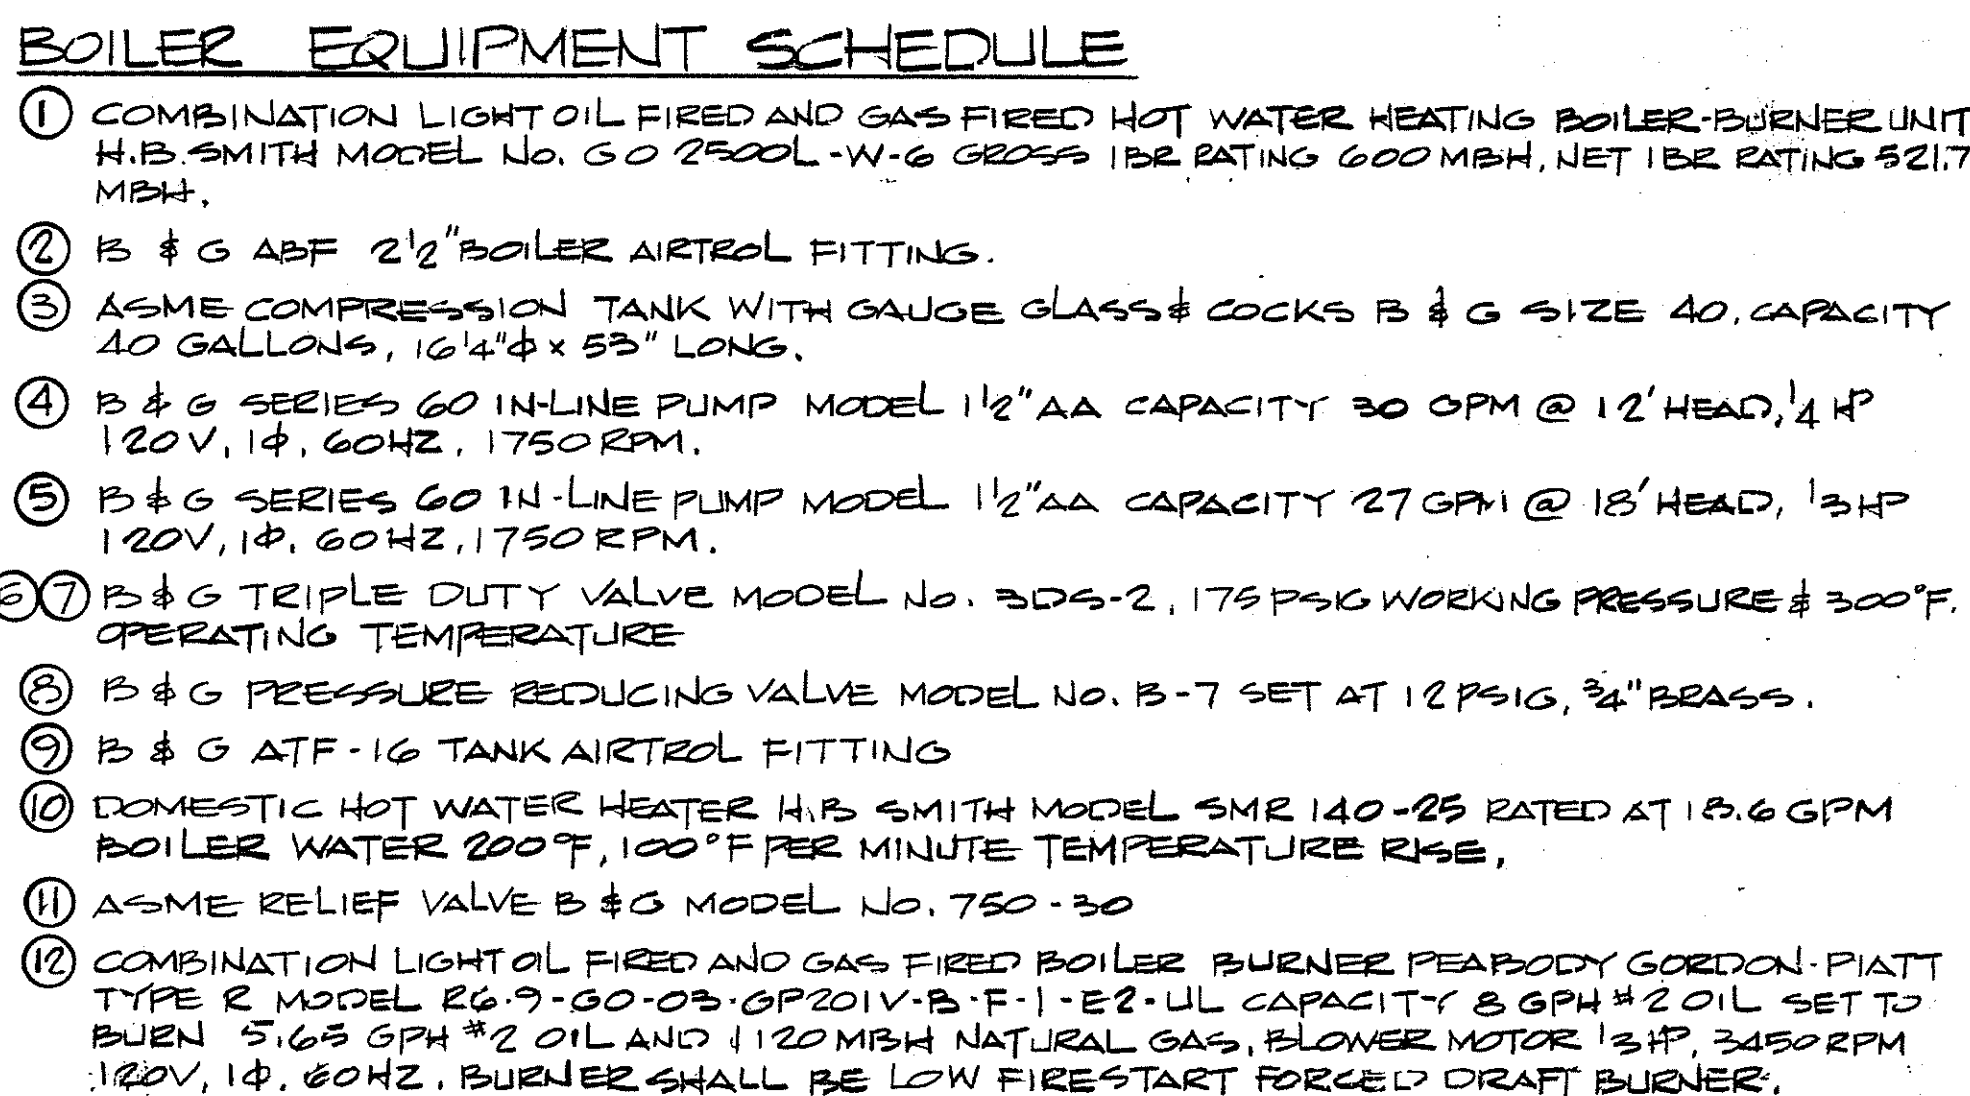 BOILER EQUIPMENT SCHEDULE
① COMBINATION LIGHT OIL FIRED AND GAS FIRED HOT WATER HEATING BOILER-BURNER UNIT
H.B. SMITH MODEL No. GO 2500L-W-6 GROSS IBR RATING 600 MBH, NET IBR RATING 521.7
MBH.
② B & G ABF 2 1/2" BOILER AIRTROL FITTING.
③ ASME COMPRESSION TANK WITH GAUGE GLASS & COCKS B & G SIZE 40, CAPACITY
40 GALLONS, 16 1/4"φ x 53" LONG.
④ B & G SERIES 60 IN-LINE PUMP MODEL 1 1/2" AA CAPACITY 30 GPM @ 12' HEAD, 1/4 HP
120V, 1φ, 60HZ, 1750 RPM.
⑤ B & G SERIES 60 IN-LINE PUMP MODEL 1 1/2" AA CAPACITY 27 GPM @ 18' HEAD, 1/3 HP
120V, 1φ, 60HZ, 1750 RPM.
⑥⑦ B & G TRIPLE DUTY VALVE MODEL No. 3DS-2, 175 PSIG WORKING PRESSURE & 300°F.
OPERATING TEMPERATURE
⑧ B & G PRESSURE REDUCING VALVE MODEL No. B-7 SET AT 12 PSIG, 3/4" BRASS.
⑨ B & G ATF-16 TANK AIRTROL FITTING
⑩ DOMESTIC HOT WATER HEATER H.B SMITH MODEL SMR 140-25 RATED AT 18.6 GPM
BOILER WATER 200°F, 100°F PER MINUTE TEMPERATURE RISE,
⑪ ASME RELIEF VALVE B & G MODEL No. 750-30
⑫ COMBINATION LIGHT OIL FIRED AND GAS FIRED BOILER BURNER PEABODY GORDON-PIATT
TYPE R MODEL R6.9-GO-03-GP201V-B-F-1-E2-UL CAPACITY 8 GPH #2 OIL SET TO
BURN 5.65 GPH #2 OIL AND 1120 MBH NATURAL GAS, BLOWER MOTOR 1/3 HP, 3450 RPM
120V, 1φ, 60HZ. BURNER SHALL BE LOW FIRE START FORCED DRAFT BURNER.